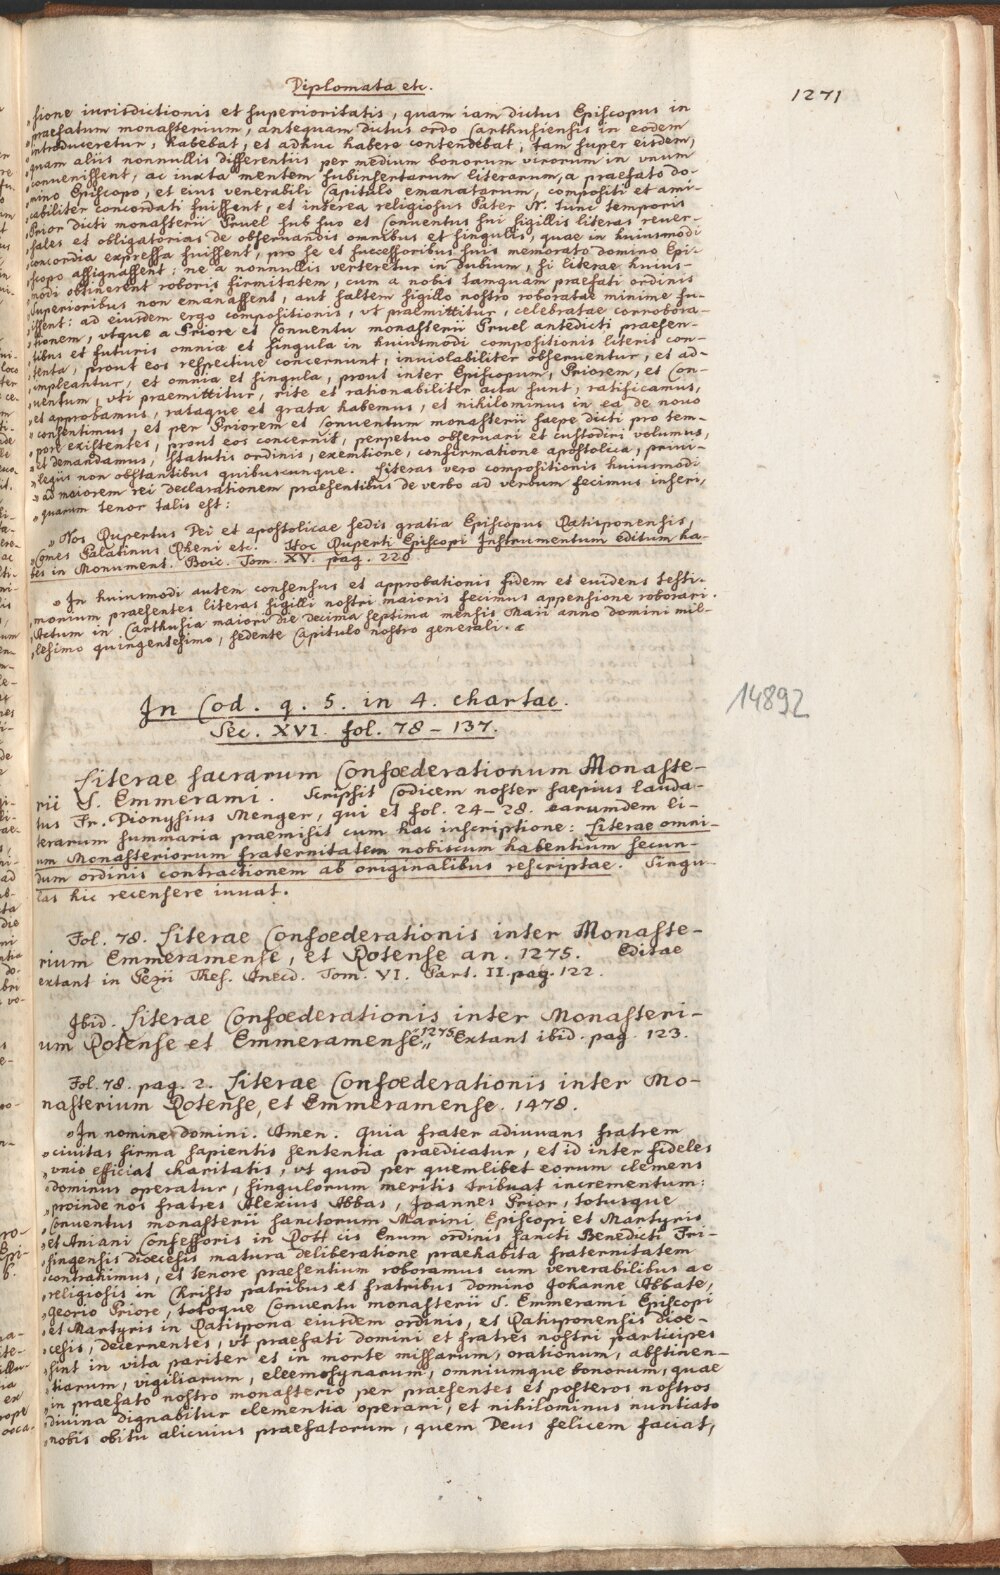 Diplomata etc.
1271
„sione iurisdictionis et superioritatis, quam iam dictus Episcopus in
„praefatum monasterium, antequam dictus ordo Carthusiensis in eodem
„introduceretur, habebat, et adhuc habere contendebat, tam super eisdem,
„quam aliis nonnullis differentiis per medium bonorum virorum in unum
„convenissent, ac iuxta mentem subinsertarum literarum, a praefato do-
„mino Episcopo, et eius venerabili Capitulo emanatarum, compositi et ami-
„cabiliter concordati fuissent, et interea religiosus Pater N. tunc temporis
„Prior dicti monasterii Pruel sub suo et Conventus sui sigillis literas rever-
„sales et obligatorias de observandis omnibus et singulis, quae in huiusmodi
„concordia expressa fuissent, pro se et successoribus suis memorato domino Epi-
„scopo assignassent: ne a nonnullis verteretur in dubium, si literae huius-
„modi obtinerent roboris firmitatem, cum a nobis tamquam praefati ordinis
„superioribus non emanassent, aut saltem sigillo nostro roboratae minime fu-
„issent: ad eiusdem ergo compositionis, vt praemittitur, celebratae corrobora-
„tionem, vtque a Priore et Conventu monasterii Pruel antedicti praesen-
„tibus et futuris omnia et singula in huiusmodi compositionis literis con-
„tenta, prout eos respective concernunt, inviolabiliter observentur, et ad-
„impleantur, et omnia et singula, prout inter Episcopum, Priorem, et Con-
„ventum, vti praemittitur, rite et rationabiliter acta sunt, ratificamus,
„et approbamus, rataque et grata habemus, et nihilominus in ea de novo
„consentimus, et per Priorem et Conventum monasterii saepe dicti pro tem-
„pore existentes, prout eos concernit, perpetuo observari et custodiri volumus,
„et demandamus, statutis ordinis, exemtione, confirmatione apostolica, privi-
„legiis non obstantibus quibuscunque. Literas vero compositionis huiusmodi
„ad maiorem rei declarationem praesentibus de verbo ad verbum fecimus inseri,
„quarum tenor talis est:
„Nos Rupertus Dei et apostolicae sedis gratia Episcopus Ratisponensis,
Comes Palatinus Rheni etc. Hoc Ruperti Episcopi Instrumentum editum ha-
bes in Monument. Boic. Tom. XV. pag. 220
„In huiusmodi autem consensus et approbationis fidem et evidens testi-
„monium praesentes literas sigilli nostri maioris fecimus appensione roborari.
„Actum in Carthusia maiori die decima septima mensis Maii anno domini mil-
„lesimo quingentesimo, sedente Capitulo nostro generali. „
In Cod. q. 5. in 4. chartac.
14892
Sec. XVI. fol. 78 – 137.
Literae sacrarum Confœderationum Monaste-
rii S. Emmerami. Scripsit Codicem noster saepius lauda-
tus Fr. Dionysius Menger, qui et fol. 24–28. earumdem li-
terarum summaria praemisit cum hac inscriptione: Literae omni-
um Monasteriorum fraternitatem nobiscum habentium secun-
dum ordinis contractionem ab originalibus rescriptae. Singu-
las hic recensere iuvat.
Fol. 78. Literae Confœderationis inter Monaste-
rium Emmeramense, et Rotense an. 1275. Editae
extant in Pezii Thes. Anecd. Tom. VI. Part. II. pag. 122.
Ibid. Literae Confœderationis inter Monasteri-
um Rotense et Emmeramense 1275 „ Extant ibid. pag. 123.
Fol. 78. pag. 2. Literae Confœderationis inter Mo-
nasterium Rotense, et Emmeramense. 1478.
„In nomine domini. Amen. Quia frater adiuvans fratrem
„civitas firma sapientis sententia praedicatur, et id inter fideles
„vnio efficiat charitatis, vt quod per quemlibet eorum clemens
„dominus operatur, singulorum meritis tribuat incrementum:
„proinde nos fratres Alexius Abbas, Joannes Prior, totusque
„Conventus monasterii sanctorum Marini Episcopi et Martyris
„et Aniani Confessoris in Rott cis Enum ordinis sancti Benedicti Fri-
„singensis diœcesis matura deliberatione praehabita fraternitatem
„contrahimus, et tenore praesentium roboramus cum venerabilibus ac
„religiosis in Christo patribus et fratribus domino Johanne Abbate,
„Georio Priore, totoque Conventu monasterii S. Emmerami Episcopi
„et Martyris in Ratispona eiusdem ordinis, et Ratisponensis diœ-
„cesis, decernentes, vt praefati domini et fratres nostri participes
„sint in vita pariter et in morte missarum, orationum, abstinen-
„tiarum, vigiliarum, eleemosynarum, omniumque bonorum, quae
„in praefato nostro monasterio per praesentes et posteros nostros
„divina dignabitur clementia operari, et nihilominus nuntiato
„nobis obitu alicuius praefatorum, quem Deus felicem faciat,